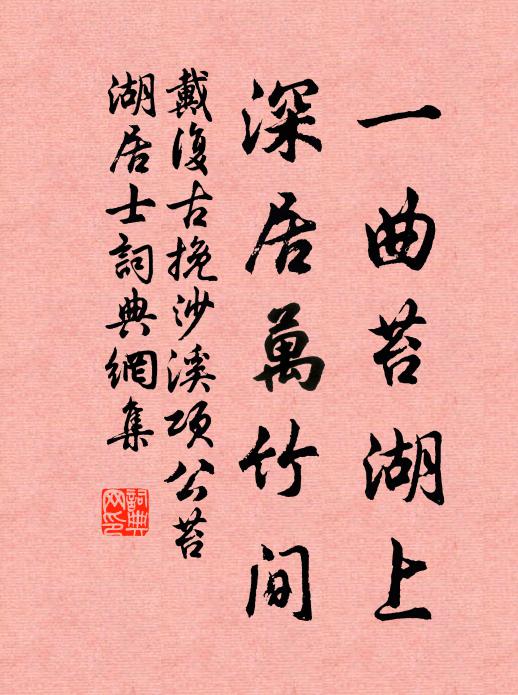 一曲苔湖上
深居萬竹間
戴復古挽沙溪項公苔
湖居士詞典網集
詞典
网印